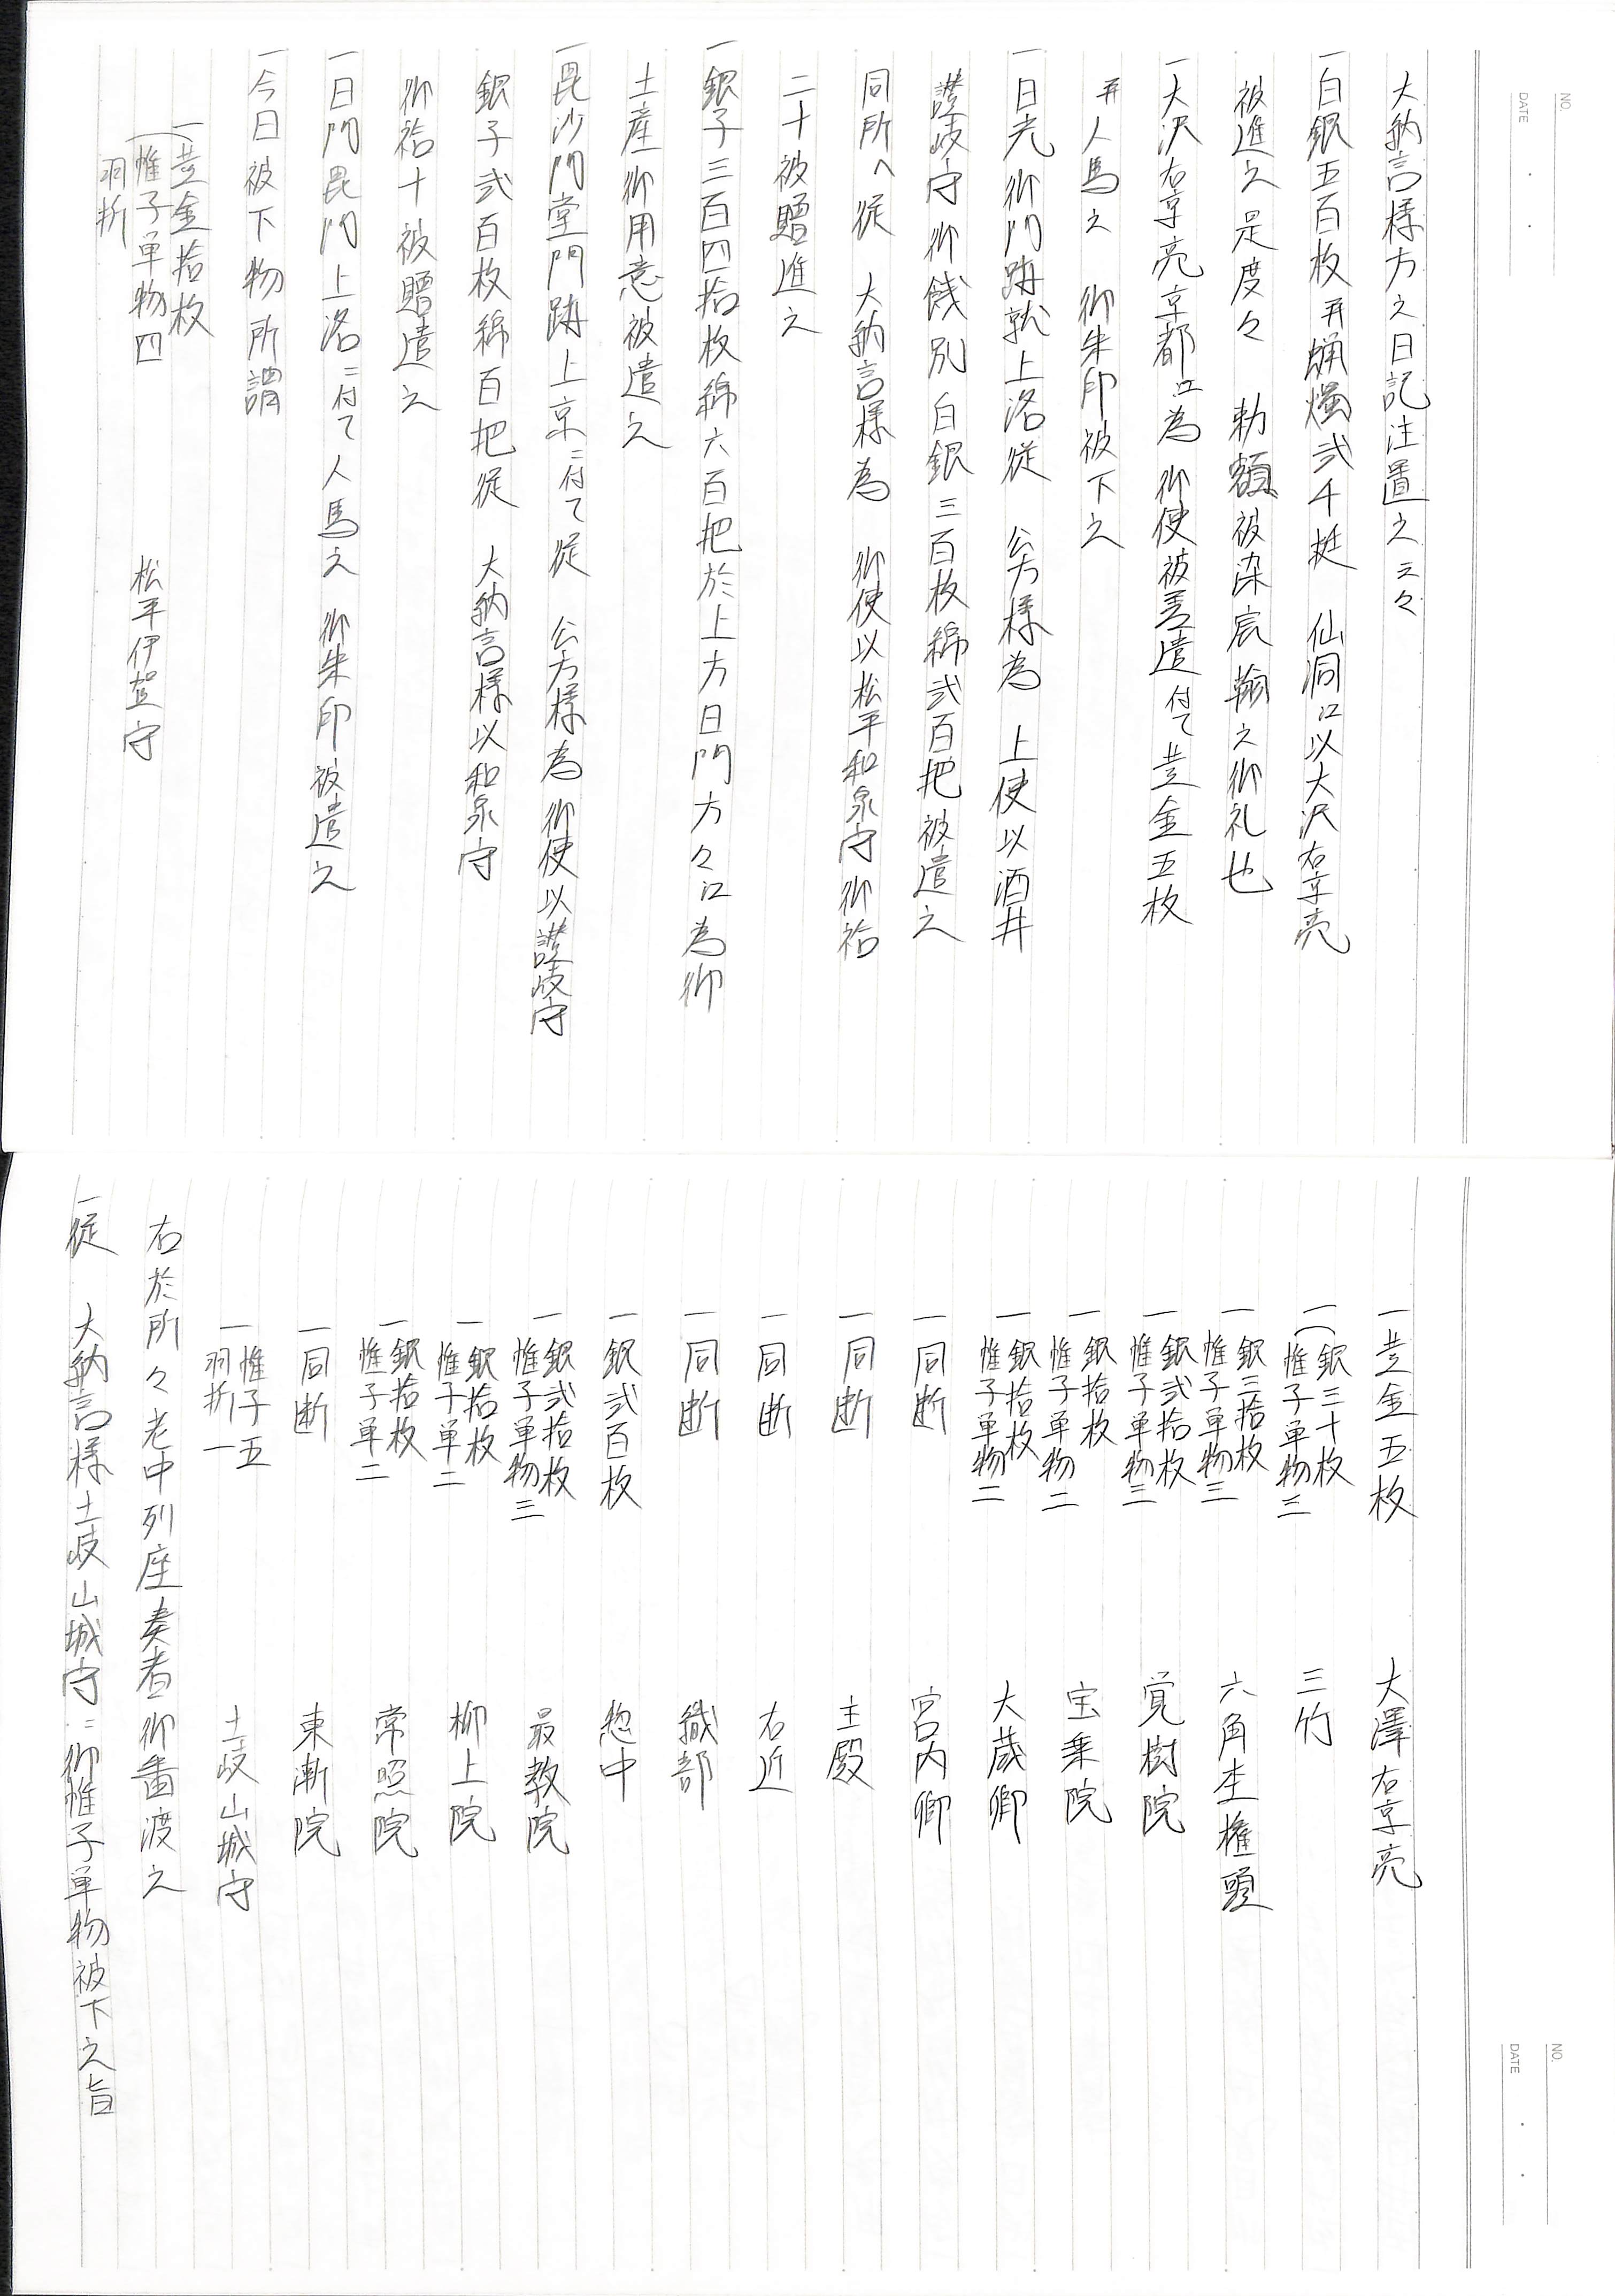 NO.
DATE
大納言様方之日記注置之云々
一白銀五百枚并蝋燭弐千挺　仙洞江以大沢右京亮
被進之是度々　勅額被染宸翰之御礼也
一大沢右京亮京都江為　御使被差遣付て黄金五枚
并人馬之　御朱印被下之
一日光御門跡就上洛従　公方様為　上使以酒井
讃岐守御餞別白銀三百枚綿弐百把被遣之
同所へ従　大納言様為　御使以松平和泉守御袷
二十被贈進之
一銀子三百四拾枚綿六百把於上方日門方々江為御
土産御用意被遣之
一毘沙門堂門跡上京ニ付て従　公方様為御使以讃岐守
銀子弐百枚綿百把従　大納言様以和泉守
御袷十被贈遣之
一日門毘門上洛ニ付て人馬之　御朱印被遣之
一今日被下物所謂
一黄金拾枚
帷子単物四　松平伊賀守
羽折
NO.
DATE
一黄金五枚　大澤右京亮
一銀三十枚
帷子単物三　三竹
一銀三拾枚
帷子単物三　六角杢権頭
一銀弐拾枚
帷子単物三　覚樹院
一銀拾枚
帷子単物二　宝乗院
一銀拾枚
帷子単物二　大蔵卿
一同断　宮内卿
一同断　主殿
一同断　右近
一同断　織部
一銀弐百枚　惣中
一銀弐拾枚
帷子単物三　最教院
一銀拾枚
帷子単二　柳上院
一銀拾枚
帷子単二　常照院
一同断　東漸院
一帷子五
羽折一　土岐山城守
右於所々老中列座奏者御番渡之
一従　大納言様土岐山城守ニ御帷子単物被下之旨